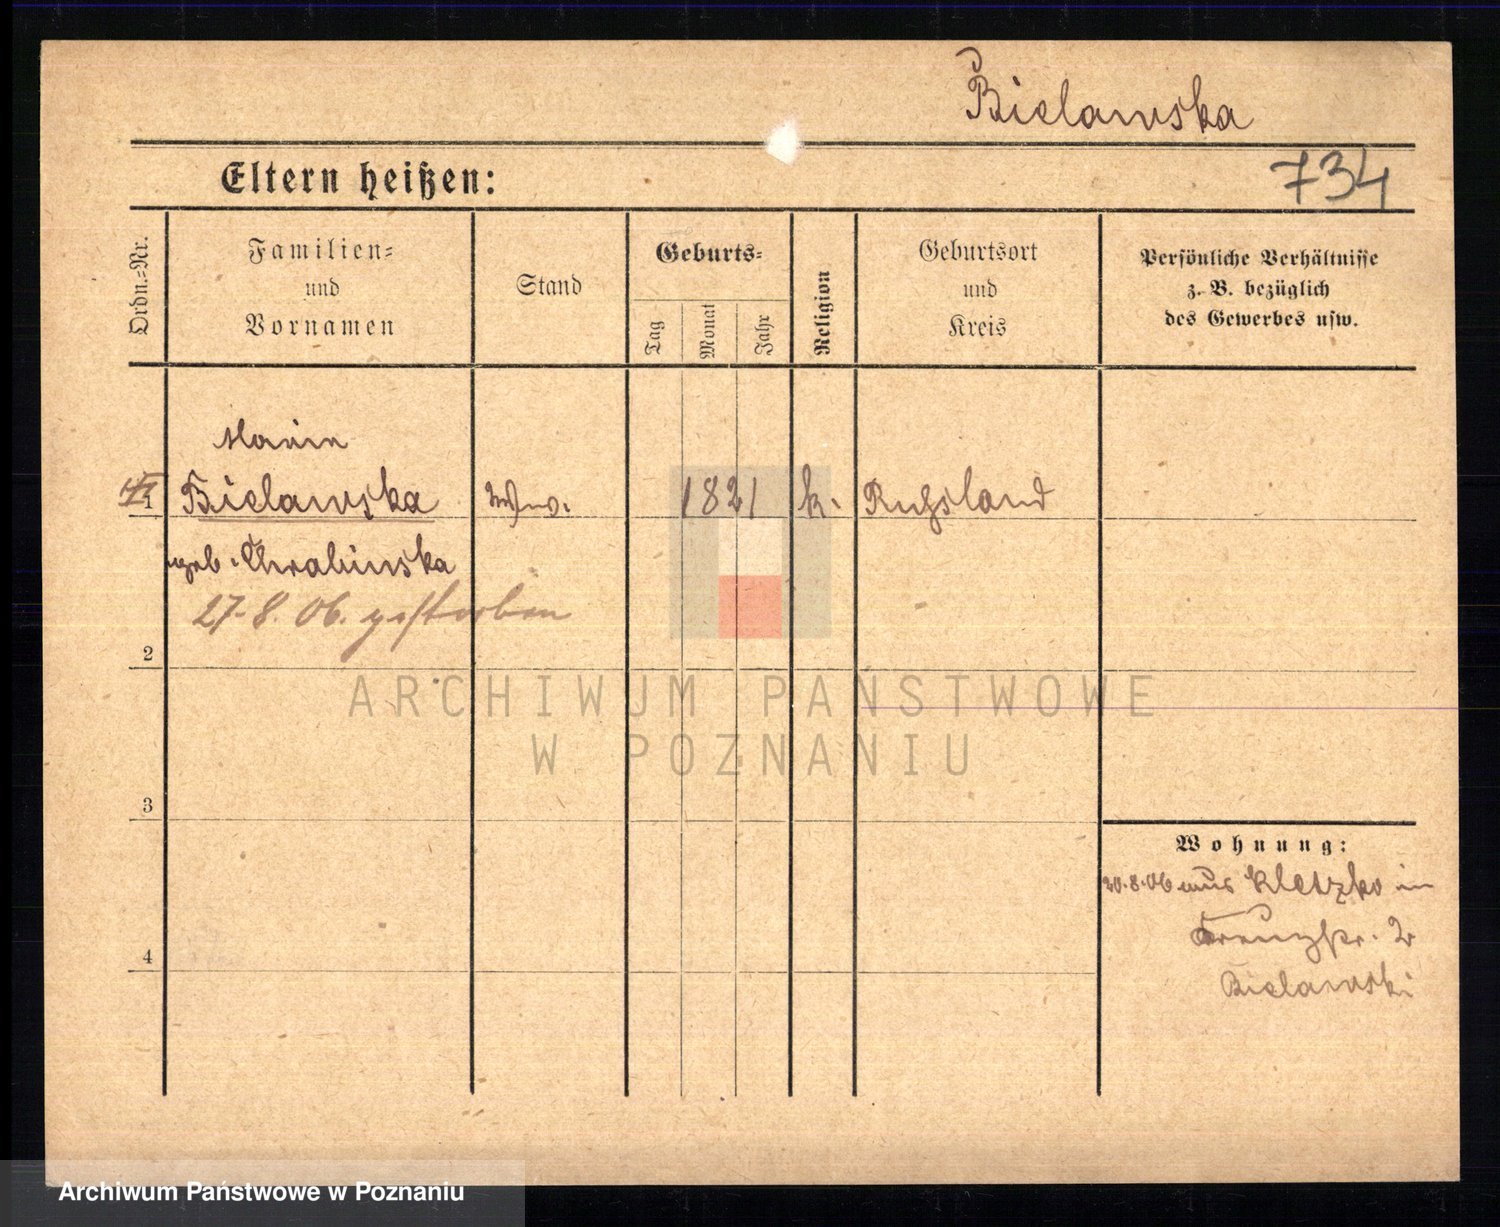 Bielawska
734
Eltern heißen:
Ordn.=Nr.
Familien=
und
Vornamen
Stand
Geburts=
Tag
Monat
Jahr
Religion
Geburtsort
und
Kreis
Persönliche Verhältnisse
z. B. bezüglich
des Gewerbes usw.
Maria
1
Bielawska
Ww.
1821
k.
Russland
geb. Chrabinska
27.8.06. gestorben
2
3
4
Wohnung:
20.8.06 aus Kletzko in
2
Bielawski
ARCHIWUM PAŃSTWOWE
W POZNANIU
Archiwum Państwowe w Poznaniu